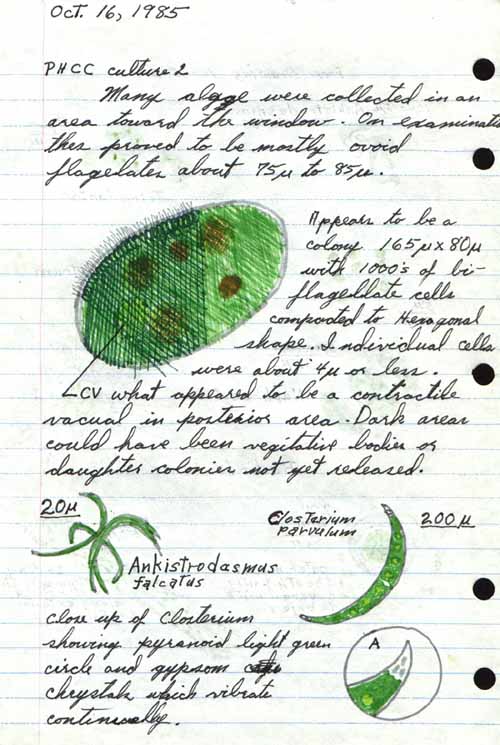 Oct. 16, 1985
PHCC culture 2
Many algge were collected in an
area toward the window. On examinati
thes proved to be mostly ovoid
flagelates about 75µ to 85µ.
Appears to be a
colony 165µ x 80µ
with 1000's of bi-
flagellate cells
compacted to Hexagonal
shape. Individual cells
were about 4µ or less.
CV what appeared to be a contractile
vacual in posterior area. Dark areas
could have been vegitative bodies or
daughter colonies not yet released.
20µ
Ankistrodasmus
falcatus
Closterium
parvulum
200µ
close up of Closterium
showing pyranoid light green
circle and gypsom
chrystals which vibrate
continually.
A